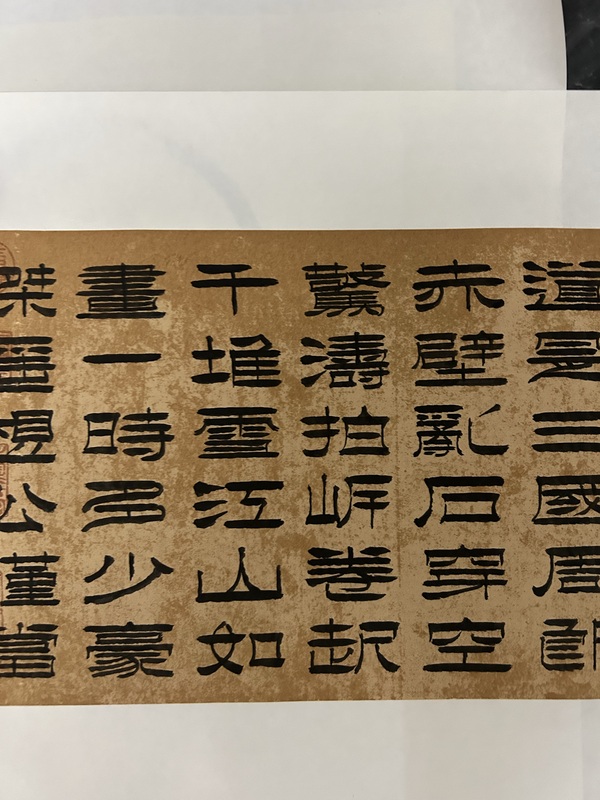 道是三國周郎
赤壁亂石穿空
驚濤拍岸卷起
千堆雪江山如
畫一時多少豪
傑公瑾當